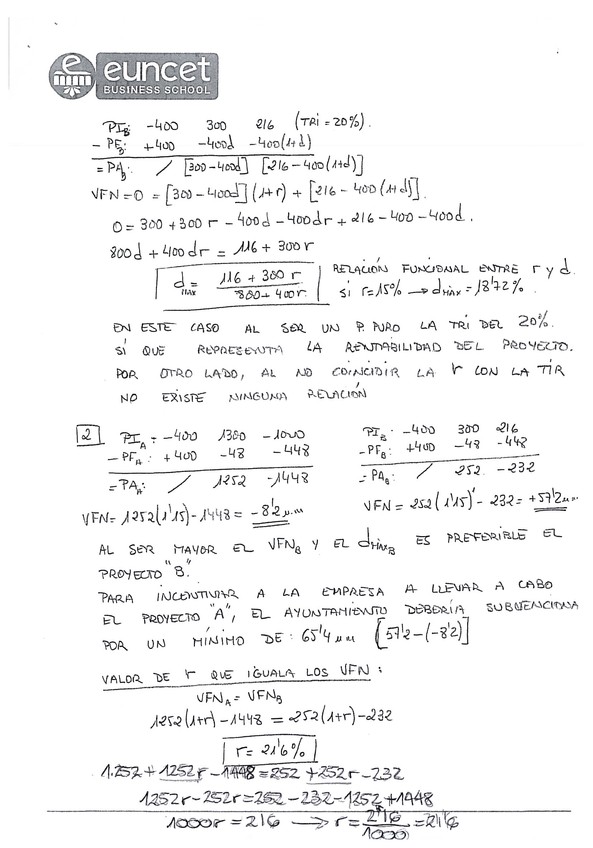 euncet
BUSINESS SCHOOL
PI_B: -400 300 216 (TRi = 20%).
- PF_B: +400 -400d -400(1+d)
= PA_B: / [300-400d] [216-400(1+d)]
VFN=0 = [300-400d](1+r) + [216-400(1+d)].
0 = 300+300r-400d-400dr+216-400-400d.
800d+400dr = 116+300r
d_MAX = (116+300r)/(800+400r) RELACIÓN FUNCIONAL ENTRE r y d.
SI r=15% → dMÁX=18'72%.
EN ESTE CASO AL SER UN P. PURO LA TRi DEL 20%.
SÍ QUE REPRESENTA LA RENTABILIDAD DEL PROYECTO.
POR OTRO LADO, AL NO COINCIDIR LA r CON LA TIR
NO EXISTE NINGUNA RELACIÓN
2 PI_A = -400 1300 -1000
- PF_A: +400 -48 -448
= PA_A: / 1252 -1448
VFN= 1252(1'15)-1448= -8'2 u.m
PI_B: -400 300 216
- PF_B: +400 -48 -448
= PA_B: / 252 -232
VFN = 252(1'15)'- 232= +57'2 u.m.
AL SER MAYOR EL VFN_B Y EL dMÁX_B ES PREFERIBLE EL
PROYECTO "B".
PARA INCENTIVAR A LA EMPRESA A LLEVAR A CABO
EL PROYECTO "A", EL AYUNTAMIENTO DEBERÍA SUBVENCIONA
POR UN MÍNIMO DE: 65'4 u.m [57'2-(-8'2)]
VALOR DE r QUE IGUALA LOS VFN:
VFN_A = VFN_B
1252(1+r)-1448 = 252(1+r)-232
r= 21'6%
1.252+1252r-1448=252+252r-232
1252r-252r=252-232-1252+1448
1000r=216 → r=216/1000=21'6